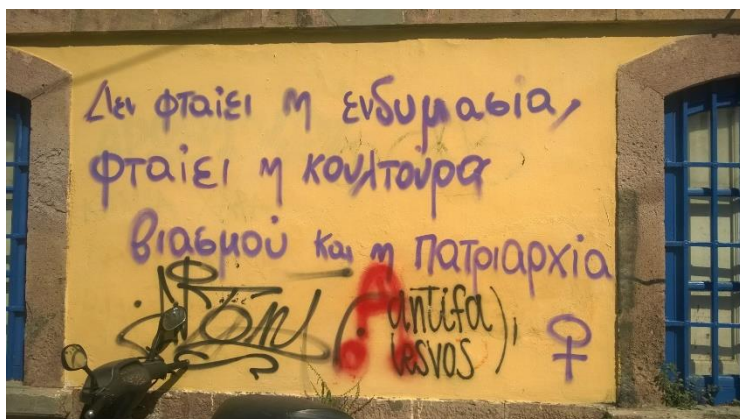 Δεν φταίει η ενδυμασία,
φταίει η κουλτούρα
βιασμού και η πατριαρχία
antifa
lesvos